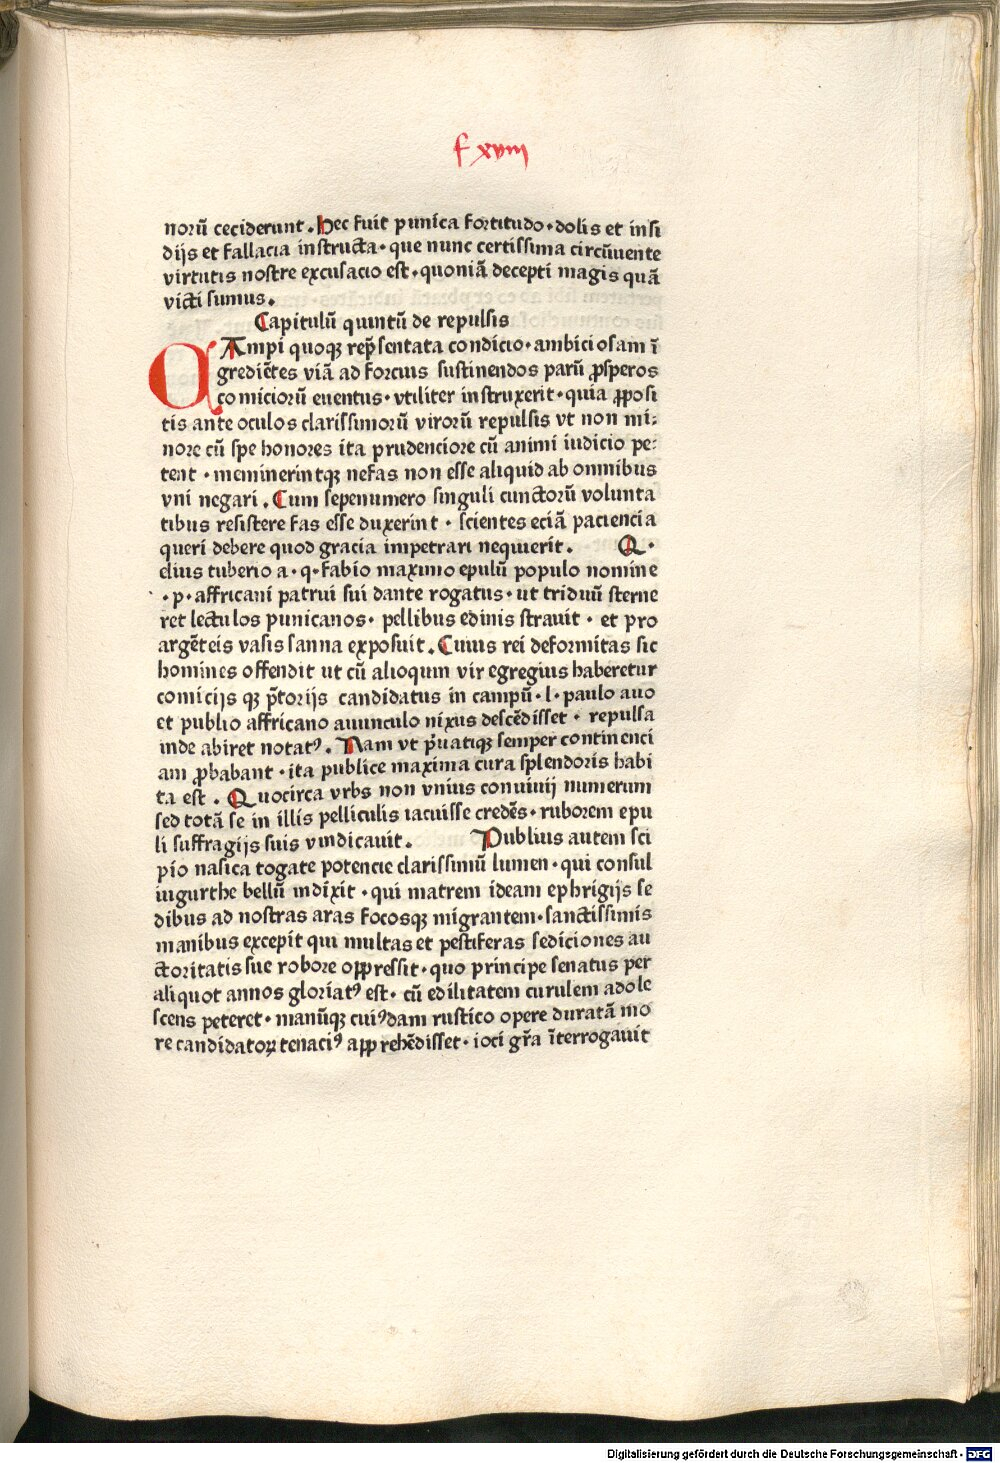 f xviii
norū ceciderunt. Hec fuit punica fortitudo· dolis et insi
dijs et fallacia instructa· que nunc certissima circūuente
virtutis nostre excusacio est· quoniā decepti magis quā
victi sumus.
Capitulū quintū de repulsis
CAmpi quoqꝫ rep̄sentata condicio· ambiciosam ī
grediētes viā ad forcius sustinendos parū ꝓsperos
comiciorū euentus· vtiliter instruxerit· quia ꝓposi
tis ante oculos clarissimorū virorū repulsis vt non mi:
nore cū spe honores ita prudenciore cū animi iudicio pe:
tent· meminerintqꝫ nefas non esse aliquid ab omnibus
vni negari. Cum sepenumero singuli cunctorū volunta
tibus resistere fas esse duxerint· scientes eciā paciencia
queri debere quod gracia impetrari nequierit. Q·
elius tuberio a· q· fabio maximo epulū populo nomine
·p· affricani patrui sui dante rogatus· ut triduū sterne
ret lectulos punicanos· pellibus edinis strauit· et pro
argēteis vasis sanna exposuit. Cuius rei deformitas sic
homines offendit ut cū alioqum vir egregius haberetur
comicijs qꝫ p̄torijs candidatus in campū· l· paulo auo
et publio affricano auunculo nixus descēdisset· repulsa
inde abiret notatꝰ. Nam vt p̄uatiqꝫ semper continenci
am ꝓbabant· ita publice maxima cura splendoris habi
ta est. Quocirca vrbs non vnius conuiuij numerum
sed totā se in illis pelliculis iacuisse credēs· ruborem epu
li suffragijs suis vindicauit. Publius autem sci
pio nasica togate potencie clarissimū lumen· qui consul
iugurthe bellū indixit· qui matrem ideam ephrigijs se
dibus ad nostras aras focosqꝫ migrantem· sanctissimis
manibus excepit qui multas et pestiferas sediciones au
ctoritatis sue robore oppressit· quo principe senatus per
aliquot annos gloriatꝰ est· cū edilitatem curulem adole
scens peteret· manūqꝫ cuiꝰdam rustico opere duratā mo
re candidatoꝝ tenaciꝰ apprehēdisset· ioci gr̄a īterrogauit
Digitalisierung gefördert durch die Deutsche Forschungsgemeinschaft - DFG